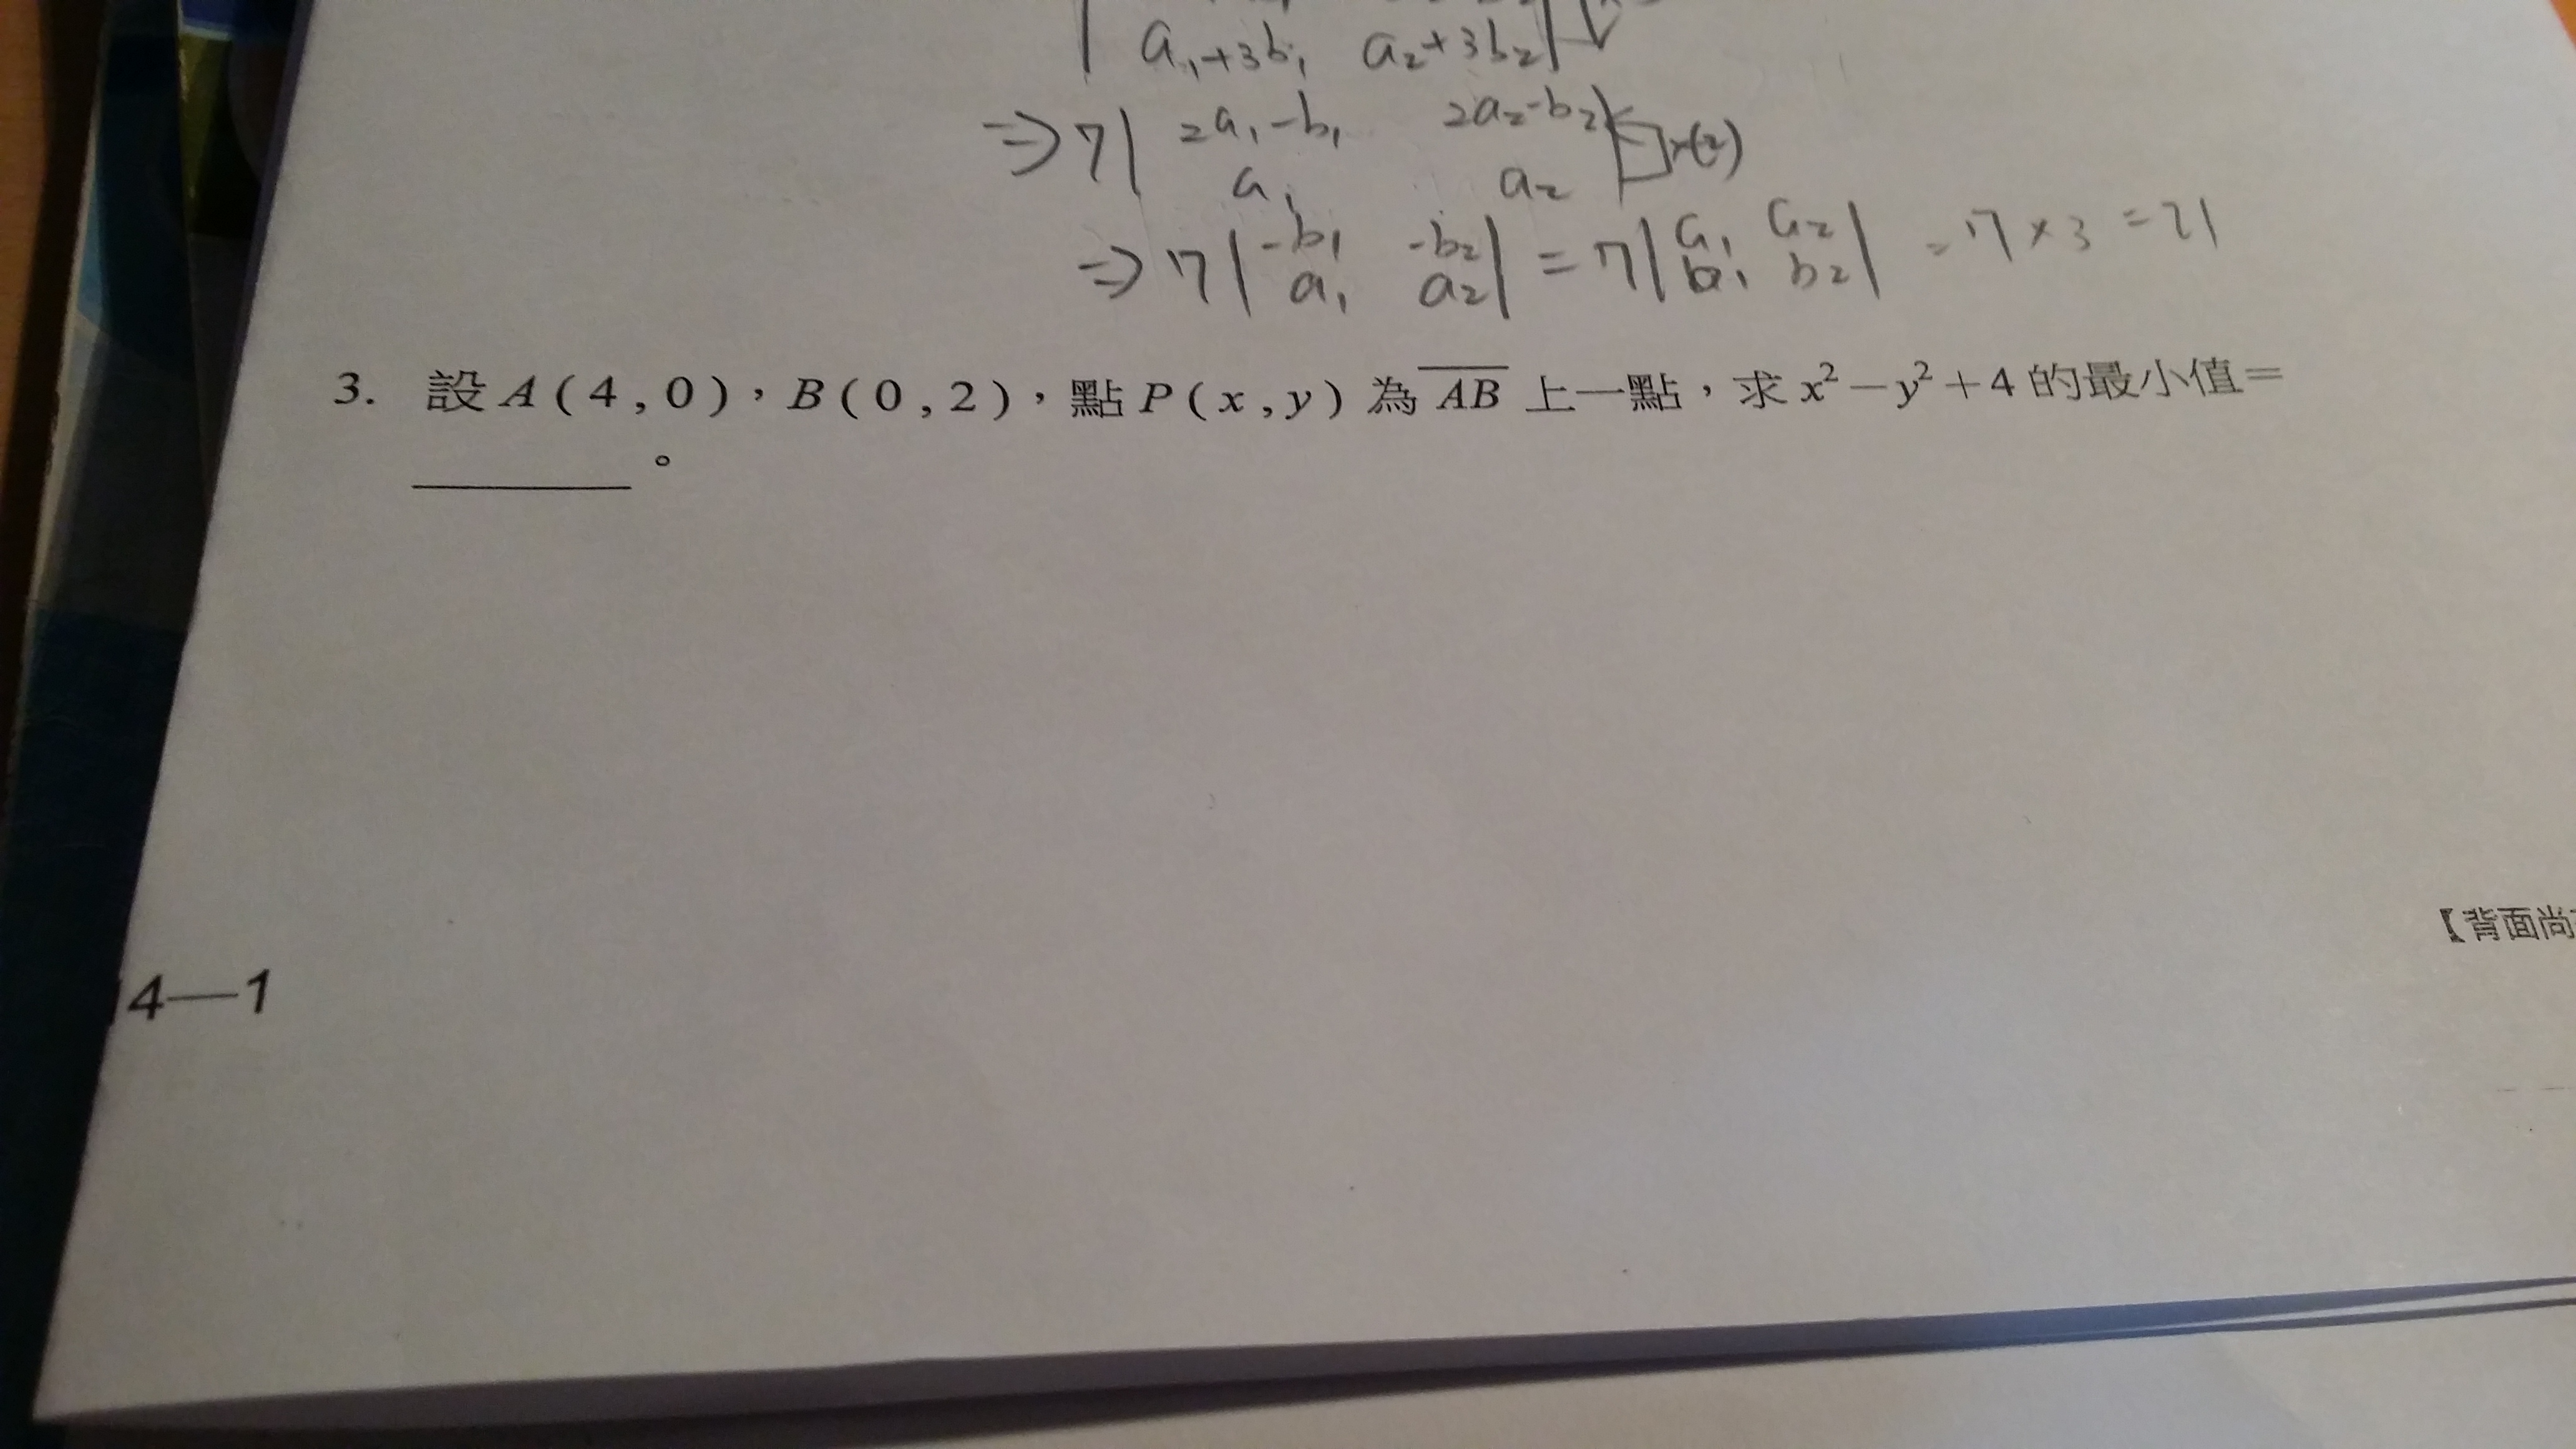 a₁+3b₁ a₂+3b₂
⇒ 7| 2a₁-b₁ 2a₂-b₂
a₁ a₂
⇒ 7| -b₁ -b₂ | = 7| a₁ a₂ | = 7×3 = 21
a₁ a₂ b₁ b₂
3. 設 A ( 4 , 0 ),B ( 0 , 2 ),點 P ( x , y ) 為 AB 上一點,求 x²-y²+4 的最小值=
______。
【背面尚
4—1